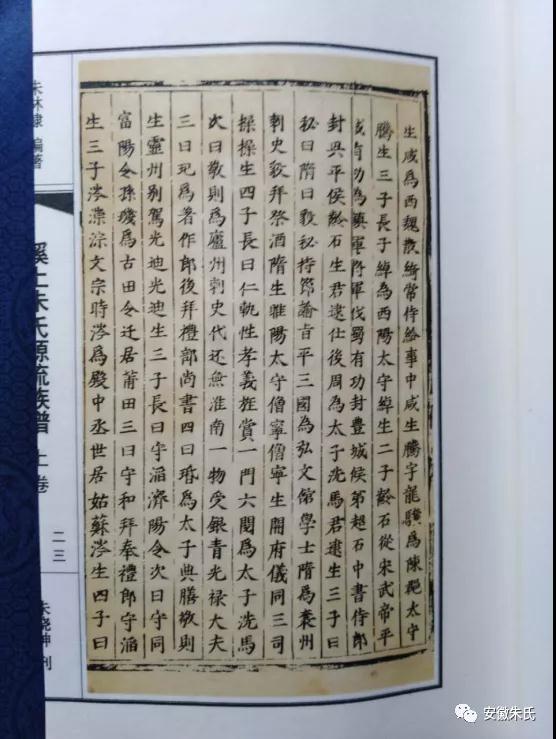 生咸為西魏散綺常侍給事中咸生騰字龍驥為陳太守
騰生三子長子綽為西陽太守綽生二子齡石從宋武帝平
有功為鎮軍將軍伐蜀有功封豊城候弟超石中書侍郎
封興平侯齡石生君逮仕後周為太子洗馬君逮生三子曰
秘曰隋曰毅秘持節旨平三國為弘文館學士隋為袁州
刺史毅拜祭酒隋生雅陽太守僧寧僧寧生開府儀同三司
操操生四子長曰仁軌性孝義旌賞一門六闕為太子洗馬
次曰敬則為廬州刺史代还無淮南一物受銀青光禄大夫
三曰玘為著作郎後拜禮部尚書四曰為太子典膳敬則
生靈州别駕光迪光迪生三子長曰守滔濟陽令次曰守同
富陽令孫瓊為古田令迁居莆田三曰守和拜奉禮郎守滔
生三子涔澡淙文宗時涔為殿中丞世居姑蘇涔生四子曰
编著
溪上朱氏源流族譜 上卷
二三
朱晓坤 刊
安徽朱氏